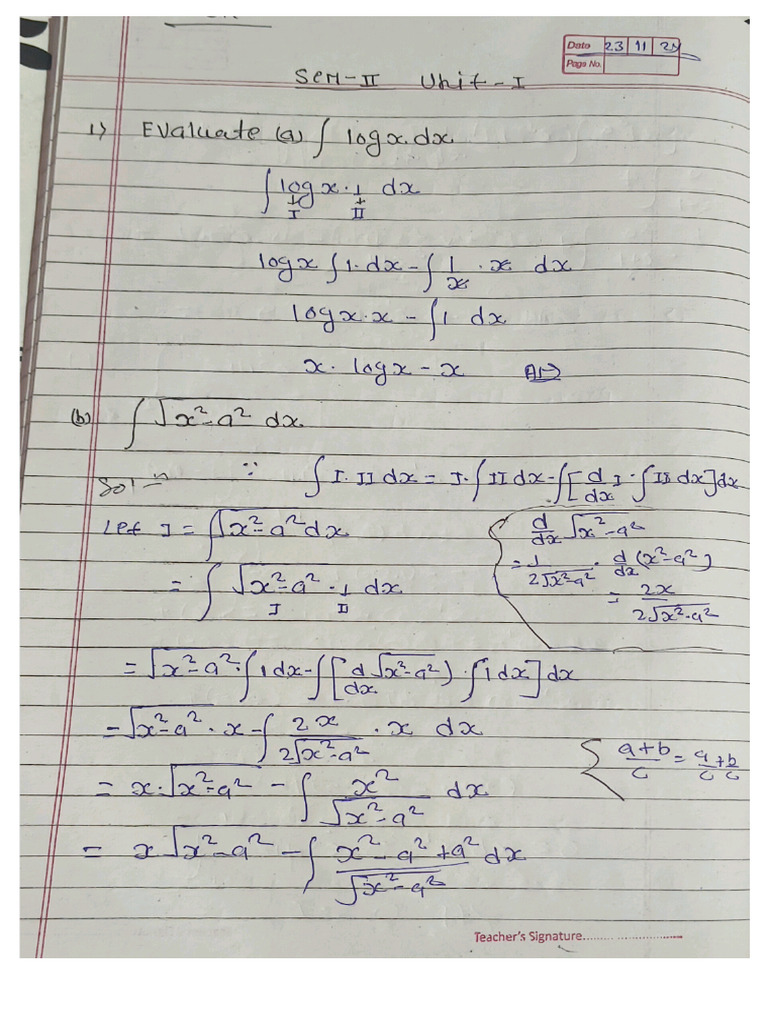 Date 23 11 24
Page No.
Sem-II Unit-I
1) Evaluate (a) ∫ logx.dx
∫ logx · 1 dx
I II
logx ∫1·dx - ∫ 1/x · x dx
logx·x - ∫1 dx
x· logx - x Ans
(b) ∫ √x²-a² dx
Sol n ∵ ∫ I·II dx = I·∫ II dx - ∫[d/dx I · ∫ II dx] dx
Let I = ∫√x²-a² dx
d/dx √x²-a²
= 1/2√x²-a² · d/dx (x²-a²)
= 2x/2√x²-a²
= ∫ √x²-a² · 1 dx
I II
= √x²-a² · ∫1dx - ∫[d/dx √x²-a²) · ∫1dx] dx
= √x²-a² · x - ∫ 2x/2√x²-a² · x dx
{ a+b/c = a/c + b/c
= x·√x²-a² - ∫ x²/√x²-a² dx
= x√x²-a² - ∫ x²-a²+a²/√x²-a² dx
Teacher's Signature